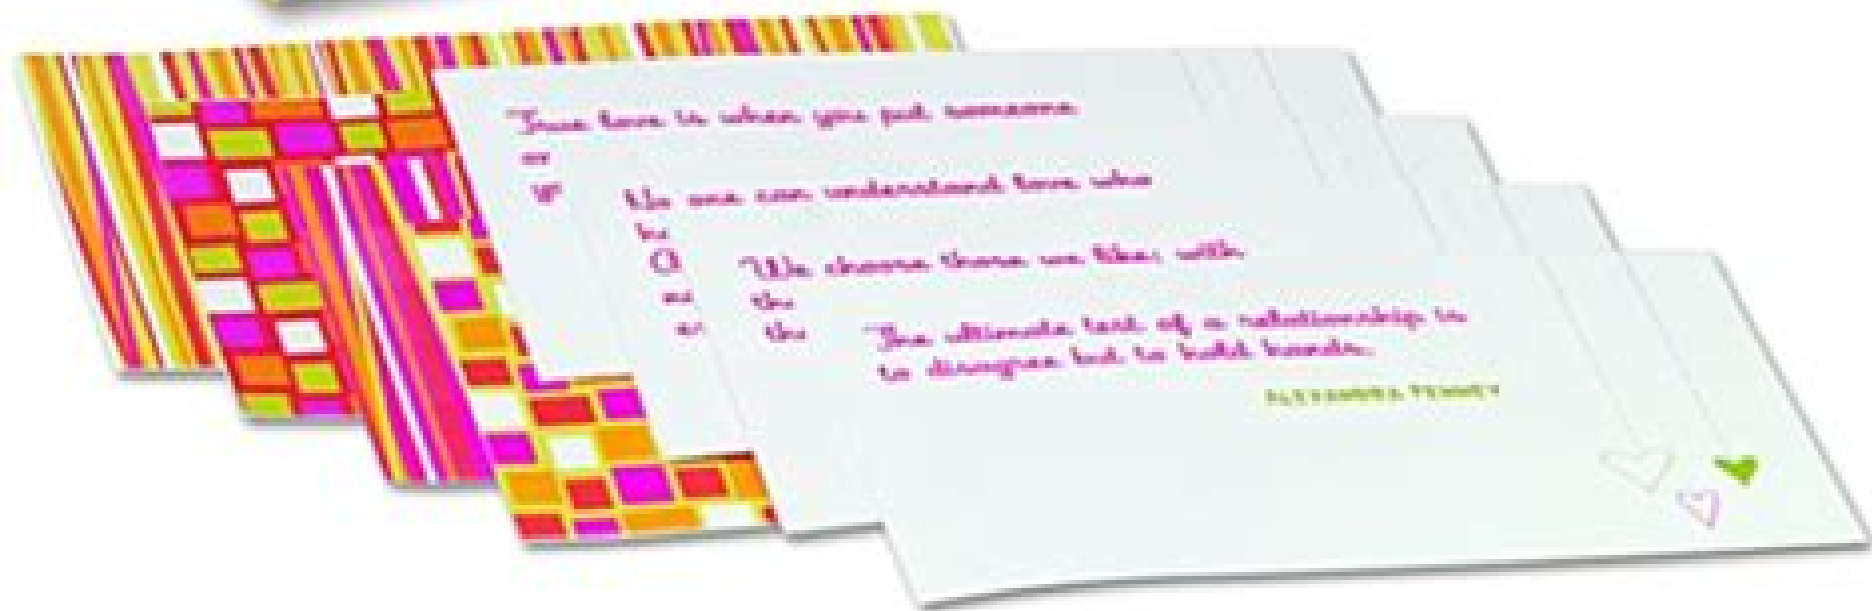 True love is when you put someone
on
yo
No one can understand love who
ha
O
no
We choose those we like; with
tho
tho
The ultimate test of a relationship is
to disagree but to hold hands.
ALEXANDRA PENNEY